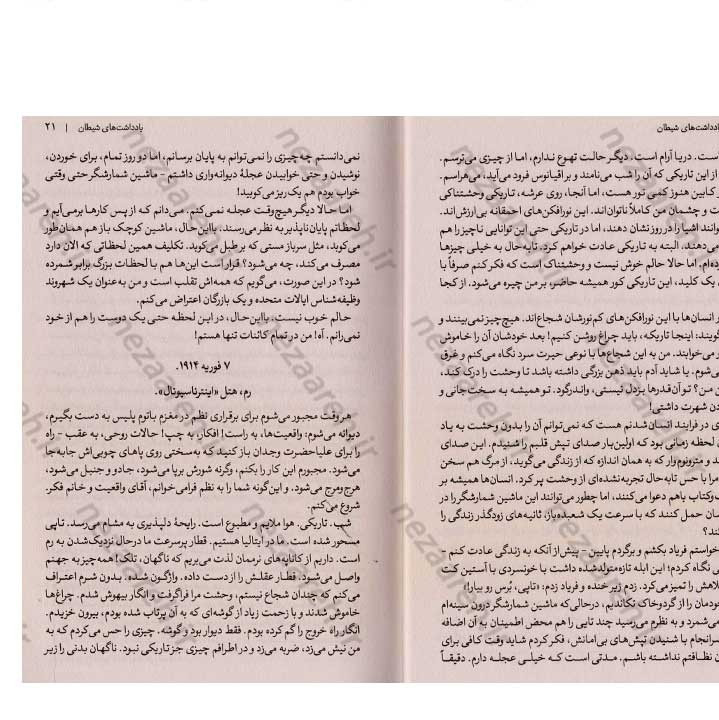 یادداشت‌های شیطان
ـست. دریا آرام است. دیگر حالت تهوع ندارم، اما از چیزی می‌ترسم.
از این تاریکی که آن را شب می‌نامند و بر اقیانوس فرود می‌آید، می‌هراسم.
ر کابین هنوز کمی نور هست، اما آنجا، روی عرشه، تاریکی وحشتناکی
ت و چشمان من کاملاً ناتوان‌اند. این نورافکن‌های احمقانه بی‌ارزش‌اند.
وانند اشیا را در روز نشان دهند، اما در تاریکی حتی این توانایی ناچیز را هم
می‌دهند. البته به تاریکی عادت خواهم کرد. تابه‌حال به خیلی چیزها
ده‌ام، اما حالا حالم خوش نیست و وحشتناک است که فکر کنم صرفاً با
یک کلید، این تاریکی کور همیشه حاضر، بر من چیره می‌شود. از کجا
ر انسان‌ها با این نورافکن‌های کم‌نورشان شجاع‌اند. هیچ‌چیز نمی‌بینند و
گویند: اینجا تاریکه، باید چراغ روشن کنیم! بعد خودشان آن را خاموش
و می‌خوابند. من به این شجاع‌ها با نوعی حیرت سرد نگاه می‌کنم و غرق
ی‌شوم. یا شاید آدم باید ذهن بزرگی داشته باشد تا وحشت را درک کند،
ن من؟ تو آن‌قدرها بزدل نیستی، واندرگود. تو همیشه به سخت‌جانی و
دن شهرت داشتی!
ی در فرایند انسان‌شدنم هست که نمی‌توانم آن را بدون وحشت به یاد
لحظه زمانی بود که اولین‌بار صدای تپش قلبم را شنیدم. این صدای
د و مترونوم‌وار که به همان اندازه که از زندگی می‌گوید، از مرگ هم سخن
مرا با حس تابه‌حال تجربه‌نشده‌ای از وحشت پر کرد. انسان‌ها همیشه بر
ـ‌وکتاب باهم دعوا می‌کنند، اما چطور می‌توانند این ماشین شمارشگر را در
ـان حمل کنند که با سرعت یک شعبده‌باز، ثانیه‌های زودگذر زندگی را
ند؟
خواستم فریاد بکشم و برگردم پایین – پیش از آنکه به زندگی عادت کنم –
ی نگاه کردم؛ این ابله تازه‌متولدشده داشت با خونسردی با آستین کت
لاهش را تمیز می‌کرد. زدم زیر خنده و فریاد زدم: «تاپی، بُرس رو بیار!»
ودمان را از گردوخاک تکاندیم، درحالی‌که ماشین شمارشگر درون سینه‌ام
ی‌شمرد و به نظرم می‌رسید چند تایی را هم محض اطمینان به آن اضافه
ـرانجام با شنیدن تپش‌های بی‌امانش، فکر کردم شاید وقت کافی برای
ن نظافتم نداشته باشم. مدتی است که خیلی عجله دارم. دقیقاً
یادداشت‌های شیطان | ۲۱
نمی‌دانستم چه‌چیزی را نمی‌توانم به پایان برسانم، اما دو روز تمام، برای خوردن،
نوشیدن و حتی خوابیدن عجلهٔ دیوانه‌واری داشتم – ماشین شمارشگر حتی وقتی
خواب بودم هم یک‌ریز می‌کوبید!
اما حالا دیگر هیچ‌وقت عجله نمی‌کنم. می‌دانم که از پس کارها برمی‌آیم و
لحظاتم پایان‌ناپذیر به نظر می‌رسند. بااین‌حال، ماشین کوچک باز هم همان‌طور
می‌کوبد، مثل سرباز مستی که بر طبل می‌کوبد. تکلیف همین لحظاتی که الان دارد
مصرف می‌کند، چه می‌شود؟ قرار است این‌ها هم با لحظات بزرگ برابر شمرده
شود؟ در این صورت، می‌گویم که همه‌اش تقلب است و من به‌عنوان یک شهروند
وظیفه‌شناس ایالات متحده و یک بازرگان اعتراض می‌کنم.
حالم خوب نیست. بااین‌حال، در این لحظه حتی یک دوست را هم از خود
نمی‌رانم. آه! من در تمام کائنات تنها هستم!
۷ فوریه ۱۹۱۴.
رم، هتل «اینترناسیونال».
هر وقت مجبور می‌شوم برای برقراری نظم در مغزم باتوم پلیس به دست بگیرم،
دیوانه می‌شوم: واقعیت‌ها، به راست! افکار، به چپ! حالات روحی، به عقب – راه
را برای علیاحضرت وجدان باز کنید که به‌سختی روی پاهای چوبی‌اش جابه‌جا
می‌شود. مجبورم این کار را بکنم، وگرنه شورش برپا می‌شود، جادو و جنبل می‌شود،
هرج‌ومرج می‌شود. و این‌گونه شما را به نظم فرامی‌خوانم، آقای واقعیت و خانم فکر.
شروع می‌کنم.
شب. تاریکی. هوا ملایم و مطبوع است. رایحهٔ دلپذیری به مشام می‌رسد. تاپی
مسحور شده است. ما در ایتالیا هستیم. قطار پرسرعت ما درحال نزدیک‌شدن به رم
است. داریم از کاناپه‌های نرممان لذت می‌بریم که ناگهان، تلک! همه‌چیز به جهنم
واصل می‌شود. قطار عقلش را از دست داده. واژگون شده. بدون شرم اعتراف
می‌کنم که چندان شجاع نیستم، وحشت مرا فراگرفت و انگار بیهوش شدم. چراغ‌ها
خاموش شدند و با زحمت زیاد از گوشه‌ای که به آن پرتاب شده بودم، بیرون خزیدم.
انگار راه خروج را گم کرده بودم. فقط دیوار بود و گوشه. چیزی را حس می‌کردم که به
من نیش می‌زد، ضربه می‌زد و در اطرافم چیزی جز تاریکی نبود. ناگهان بدنی را زیر